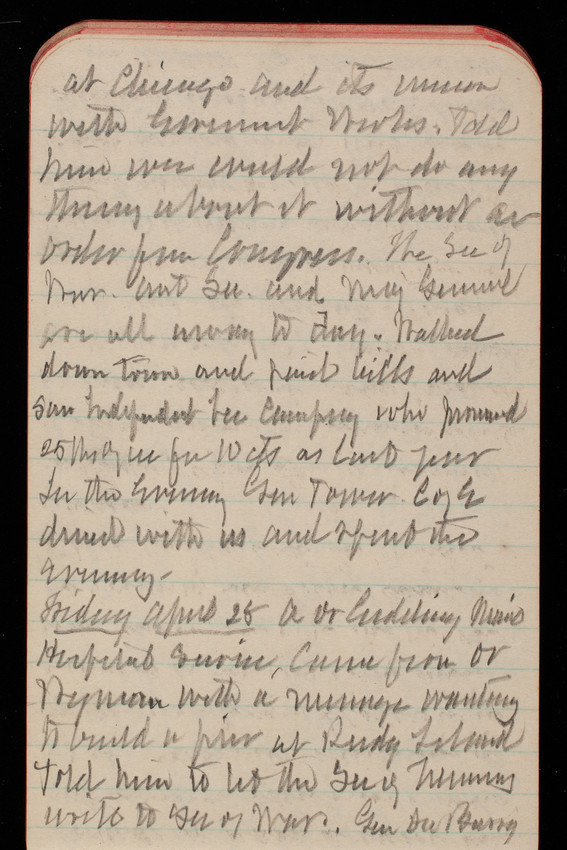 at Chicago and its union
with Goverment Works. Told
him we could not do any
thing about it without an
order from Congress. The Sec of
War. ant Sec. and Maj General
are all away to day. Walked
down town and paid bills and
saw Independent Ice Company who promised
25 lbs of ice for 10 cts as last year
In the Evening Gen Tower C of E
dined with us and spent the
evening-
Friday April 25 A Dr Marine
Hospital Service, Came from Dr
Wyman with a message wanting
to build a pier at Island
Told him to let the Sec of Treasury
write to Sec of War. Gen Du Barry